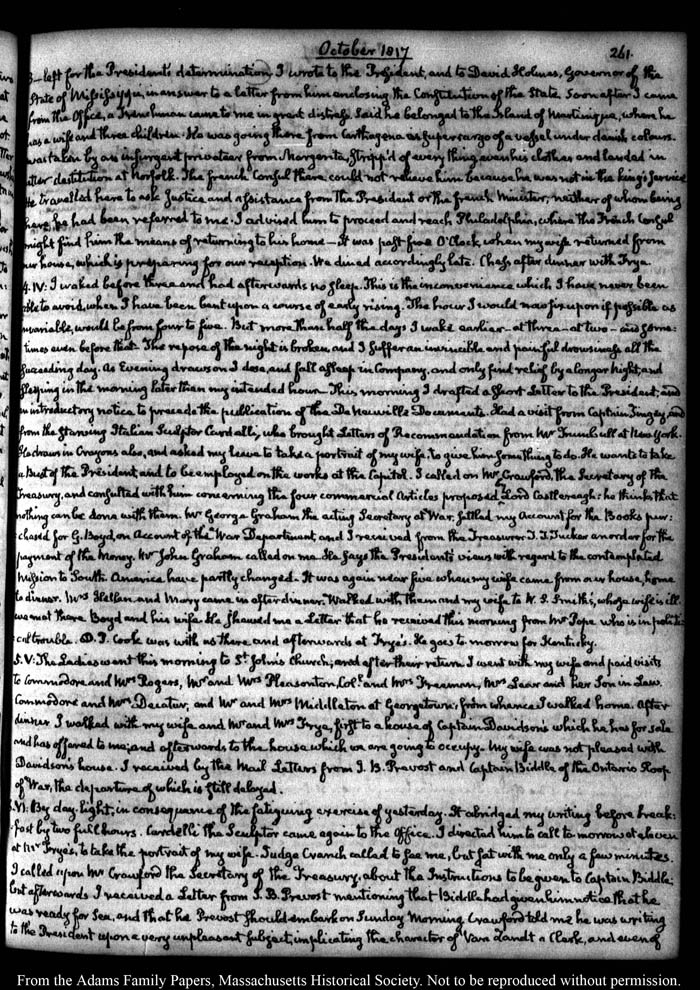 October 1817
261.
3— left for the President's determination, I wrote to the President, and to David Holmes, Governor of the
State of Mississippi, in answer to a letter from him enclosing the Constitution of the State. Soon after I came
from the Office, a Frenchman came to me in great distress. Said he belonged to the Island of Martinique, where he
has a wife and three children. He was going there from Carthagena as Supercargo of a vessel under danish colours.
was taken by an insurgent privateer from Margarita, Stripp'd of every thing, even his clothes and landed in
utter destitution at Norfolk. The French Consul there could not relieve him because he was not in the king's Service
He travelled here to ask Justice and assistance from the President or the French Minister, neither of whom being
here, he had been referred to me. I advised him to proceed and reach Philadelphia, where the French Consul
might find him the means of returning to his home— It was past five O'Clock, when my wife returned from
our house, which is preparing for our reception. We dined accordingly late. Chess after dinner with Frye.
4. IV: I waked before three and had afterwards no sleep. This is the inconvenience which I have never been
able to avoid, when I have been bent upon a course of early rising. The hour I would now fix upon if possible as
invariable, would be from four to five. But more than half the days I wake earlier— at three— at two— and some:
times even before that. The repose of the night is broken, and I suffer an invincible and painful drowsiness all the
succeeding day. As Evening draws on I dose, and fall asleep in Company, and only find relief by a longer night, and
sleeping in the morning later than my intended hour. This morning I drafted a short Letter to the President, and
an introductory notice to precede the publication of the De Neuville Documents. Had a visit from Captain Tingey, and
from the starving Italian Sculptor Cardelli, who brought Letters of Recommendation from Mr Trumbull at New York.
He draws in Crayons also, and asked my leave to take a portrait of my wife, to give him something to do. He wants to take
a Bust of the President, and to be employed on the works at the Capitol. I called on Mr Crawford, the Secretary of the
Treasury, and consulted with him concerning the four commercial Articles proposed Lord Castlereagh: he thinks that
nothing can be done with them. Mr George Graham the acting Secretary at War, settled my Account for the Books pur:
chased for G. Boyd, on Account of the War Department, and I received from the Treasurer T. T. Tucker an order for the
payment of the Money. Mr John Graham called on me. He says the President's views with regard to the contemplated
Mission to South America have partly changed. It was again near five when my wife came from our house, home
to dinner. Mrs Hellen and Mary came in after dinner. Walked with them and my wife to W. S. Smith's, whose wife is ill.
we met there Boyd and his wife. He shewed me a Letter that he received this morning from Mr Pope who is in politi:
cal trouble. D. P. Cooke was with us there and afterwards at Frye's. He goes to morrow for Kentucky.
5. V: The Ladies went this morning to St John's Church; and after their return I went with my wife and paid visits
to Commodore and Mrs Rogers, Mr and Mrs Pleasonton, Coll. and Mrs Freeman, Mrs Lear and her Son in Law.
Commodore and Mrs Decatur, and Mr and Mrs Middleton at Georgetown; from whence I walked home. After
dinner I walked with my wife and Mr and Mrs Frye, first to a house of Captain Davidson's which he has for sale
and has offered to me; and afterwards to the house which we are going to occupy. My wife was not pleased with
Davidson's house. I received by the Mail Letters from J. B. Prevost and Captain Biddle of the Ontario Sloop
of War, the departure of which is still delayed.
VI: By day-light; in consequence of the fatiguing exercise of yesterday. It abridged my writing before break:
fast by two full hours. Cardelli the Sculptor came again to the Office. I directed him to call to morrow at eleven
at Mr Frye's, to take the portrait of my wife. Judge Cranch called to see me, but sat with me only a few minutes.
I called upon Mr Crawford the Secretary of the Treasury, about the Instructions to be given to Captain Biddle:
but afterwards I received a Letter from J. B. Prevost mentioning that Biddle had given him notice that he
was ready for Sea, and that he Prevost should embark on Sunday Morning. Crawford told me he was writing
to the President upon a very unpleasant subject, implicating the character of Van Zandt a Clerk, and even of
From the Adams Family Papers, Massachusetts Historical Society. Not to be reproduced without permission.